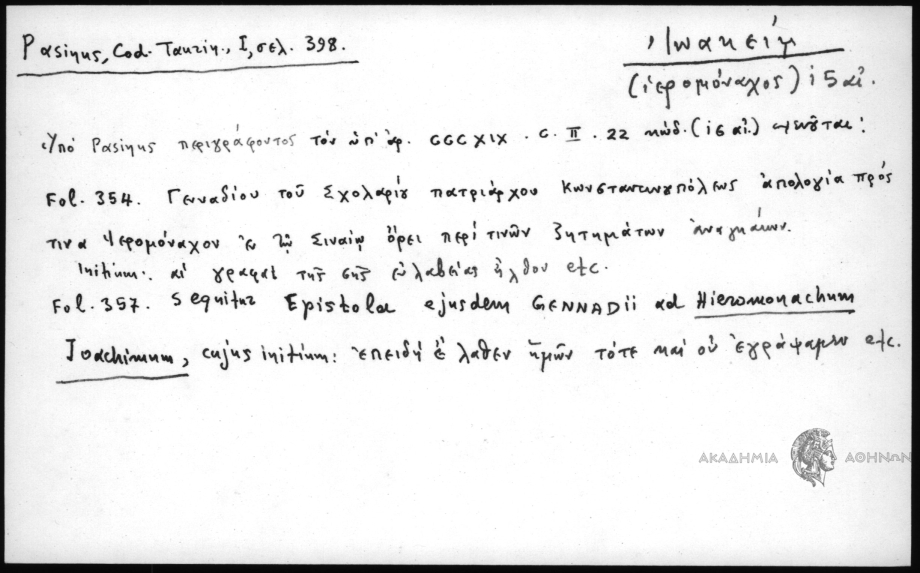 Pasinus, Cod. Taurin., I, σελ. 398.
Ἰωακείμ
(ἱερομόναχος) ι5 αἰ.
Ὑπό Pasinus περιγράφοντος τόν ὑπ' ἀρ. CCCXIX. C. II. 22 κώδ. (ι6 αἰ.) λέγεται:
Fol. 354. Γενναδίου τοῦ Σχολαρίου πατριάρχου Κωνσταντινουπόλεως ἀπολογία πρός
τινα Ἱερομόναχον ἐν τῷ Σιναίῳ ὄρει περί τινῶν ζητημάτων ἀναγκαίων.
Initium: αἱ γραφαί τῆς σῆς εὐλαβείας ἦλθον etc.
Fol. 357. Sequitur Epistola ejusdem GENNADii ad Hieromonachum
Joachimum, cujus initium: ἐπειδή ἔλαθεν ἡμῶν τότε καί οὐ ἐγράψαμεν etc.
ΑΚΑΔΗΜΙΑ ΑΘΗΝΩΝ